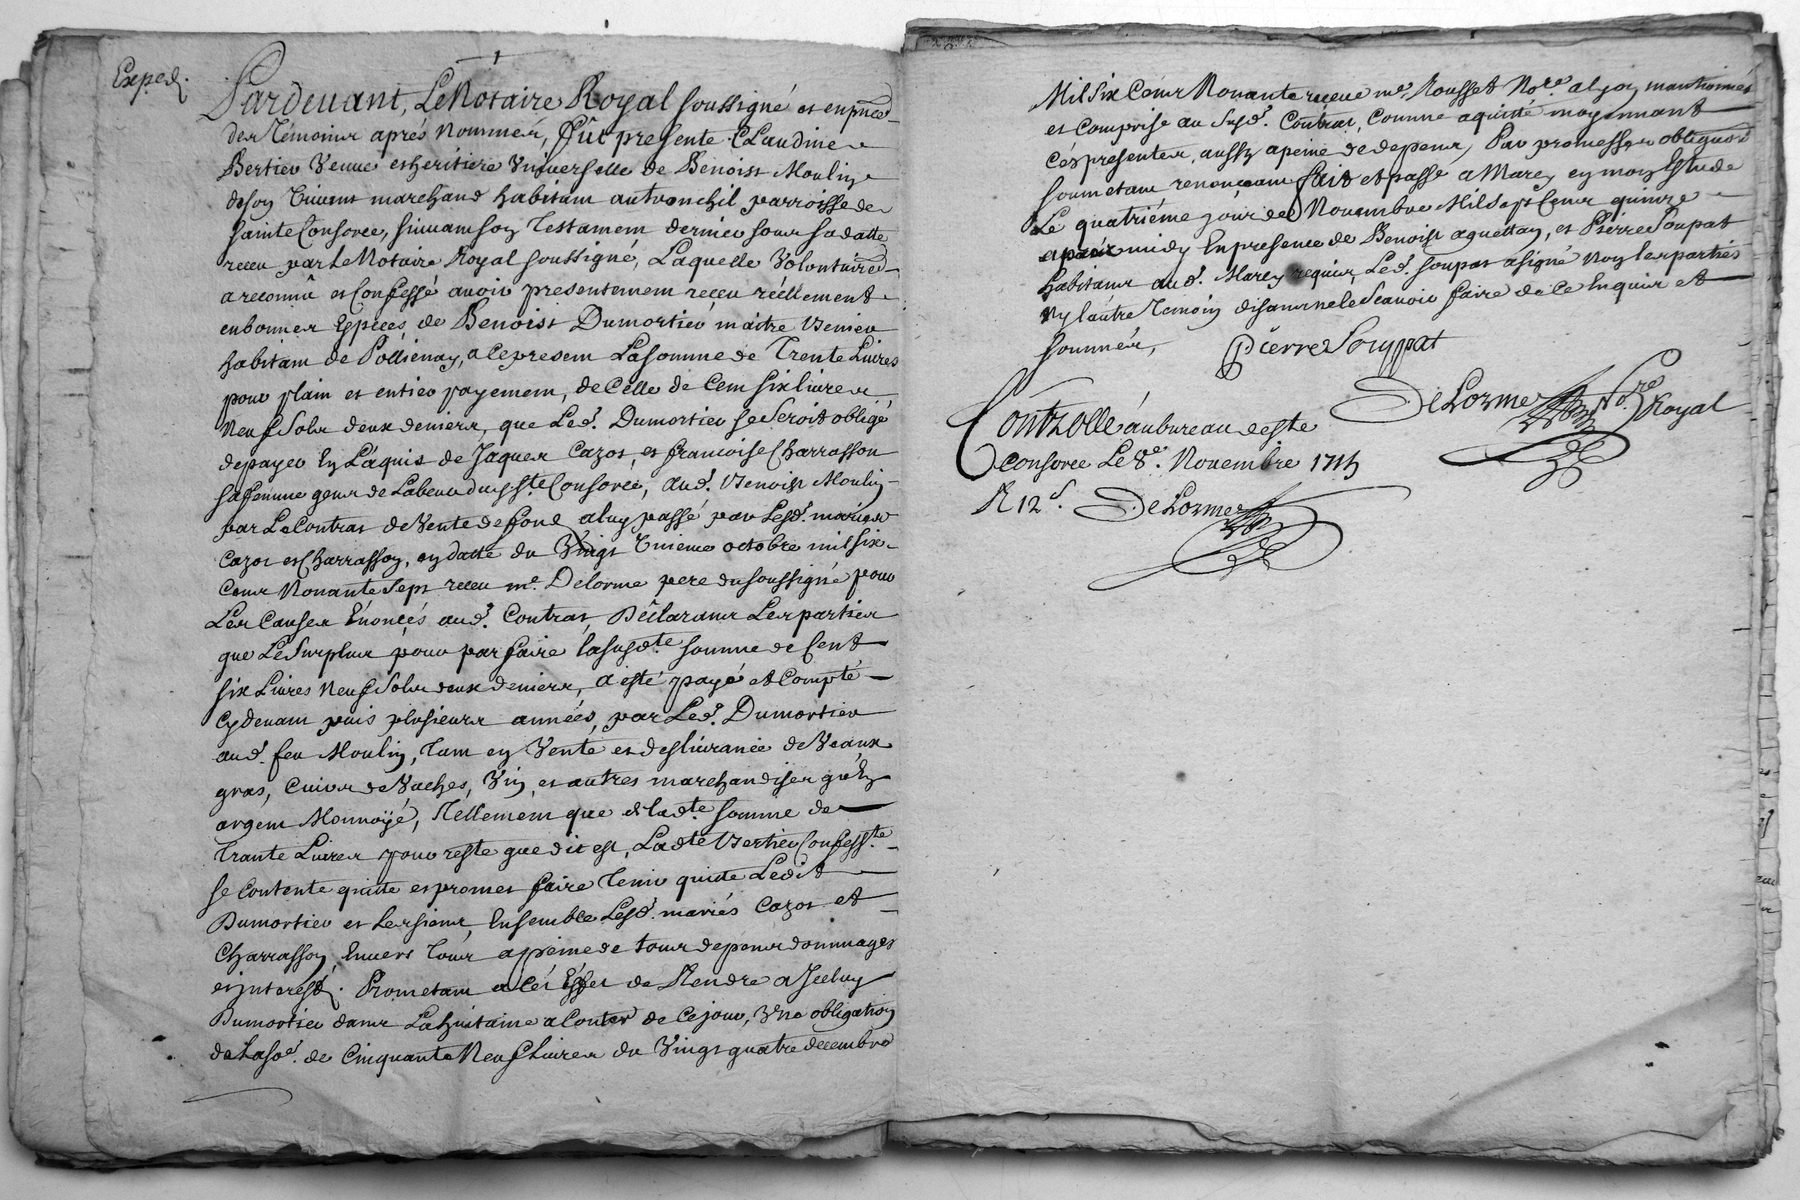 Exped.
Pardevant, Le Notaire Royal soussigné et en pñce
des Témoins aprés Nommés, fût presente Claudine
Bertier Veuve et heritiere Universelle de Benoist Moulin
de son vivant marchand habitant au tronchil parroisse de
Sainte Consorce, suivant son Testament dernier sous sa datte
receu par Le Notaire Royal soussigné, Laquelle Volontairem.
a reconnû et Confessé avoir presentement receu réellement
en bonnes Espéces de Benoist Dumortier maitre Venier
habitant de Pollienay, a ce present La somme de Trente Livres
pour plain et entier payement, de Celle de Cent six livres
Neuf Sols deux deniers, que Led. Dumortier se Seroit obligé
de payer En L'aquis de Jâques Cazot, et francoise Charrasson
sa femme gens de Labeur dud. Ste Consorce, aud. Benoist Moulin
par Le Contrat de Vente de fond a luy passé par Lesd. mariés
Cazot et Charrasson, en datte du Vingt Troisieme octobre mil six
Cent Nonante Sept receu me. Delorme pere du soussigné pour
Les Causes Enoncés aud. Contrat, Déclarant Les parties
que Le Surplus pour par faire la susd.te somme de Cent
six Livres Neuf Sols deux deniers, a esté payé et Compté
Cy devant puis plusieurs années, par Led. Dumortier
aud. feu Moulin, Tant en Vente et deslivrance de Veaux
gras, Cuirs de Vaches, Vin, et autres marchandises qu'En
argent Monnoÿé, Tellement que de lad.te somme de
Trante Livres pour reste que dit est, Lad.te Bertier Confess.te
se Contente quitte et promet faire Tenir quitte Ledit
Dumortier et Les siens, Ensemble Lesd. mariés Cazot et
Charrasson, Envers Tous a peine de tous depens dommages
et interest. Prometant a Cét Effet de Rendre a Jceluy
Dumortier dans La huitaine a Conter de Ce jour, Une obligation
de La So.e de Cinquante Neuf Livres du Vingt quatre decembre
Mil six Cent Nonante receue me. Rousset No.re a Lyon mantionnés
et Comprise au Susd. Contrat, Comme aquitté moyennant
Cés presentes, aussy a peine de depens, Par promesses obligaons
soumetant renonçant fait et passé a Marcy en mon Estude
Le quatriéme jour de Novembre Mil Sept Cent quinze
apréx midy En presence de Benoist aquettan, et Pierre Soupat
habitans aud. Marcy requis, Led. Soupat a signé Non les parties
Ny l'autre Temoin disant ne le Scavoir faire de Ce Enquis et
Sommés,
Pierre Souppat
DeLorme No.re Royal
Controllé au bureau de Ste
Consorce Le 8e. Novembre 1715
R 12 s.
DeLorme